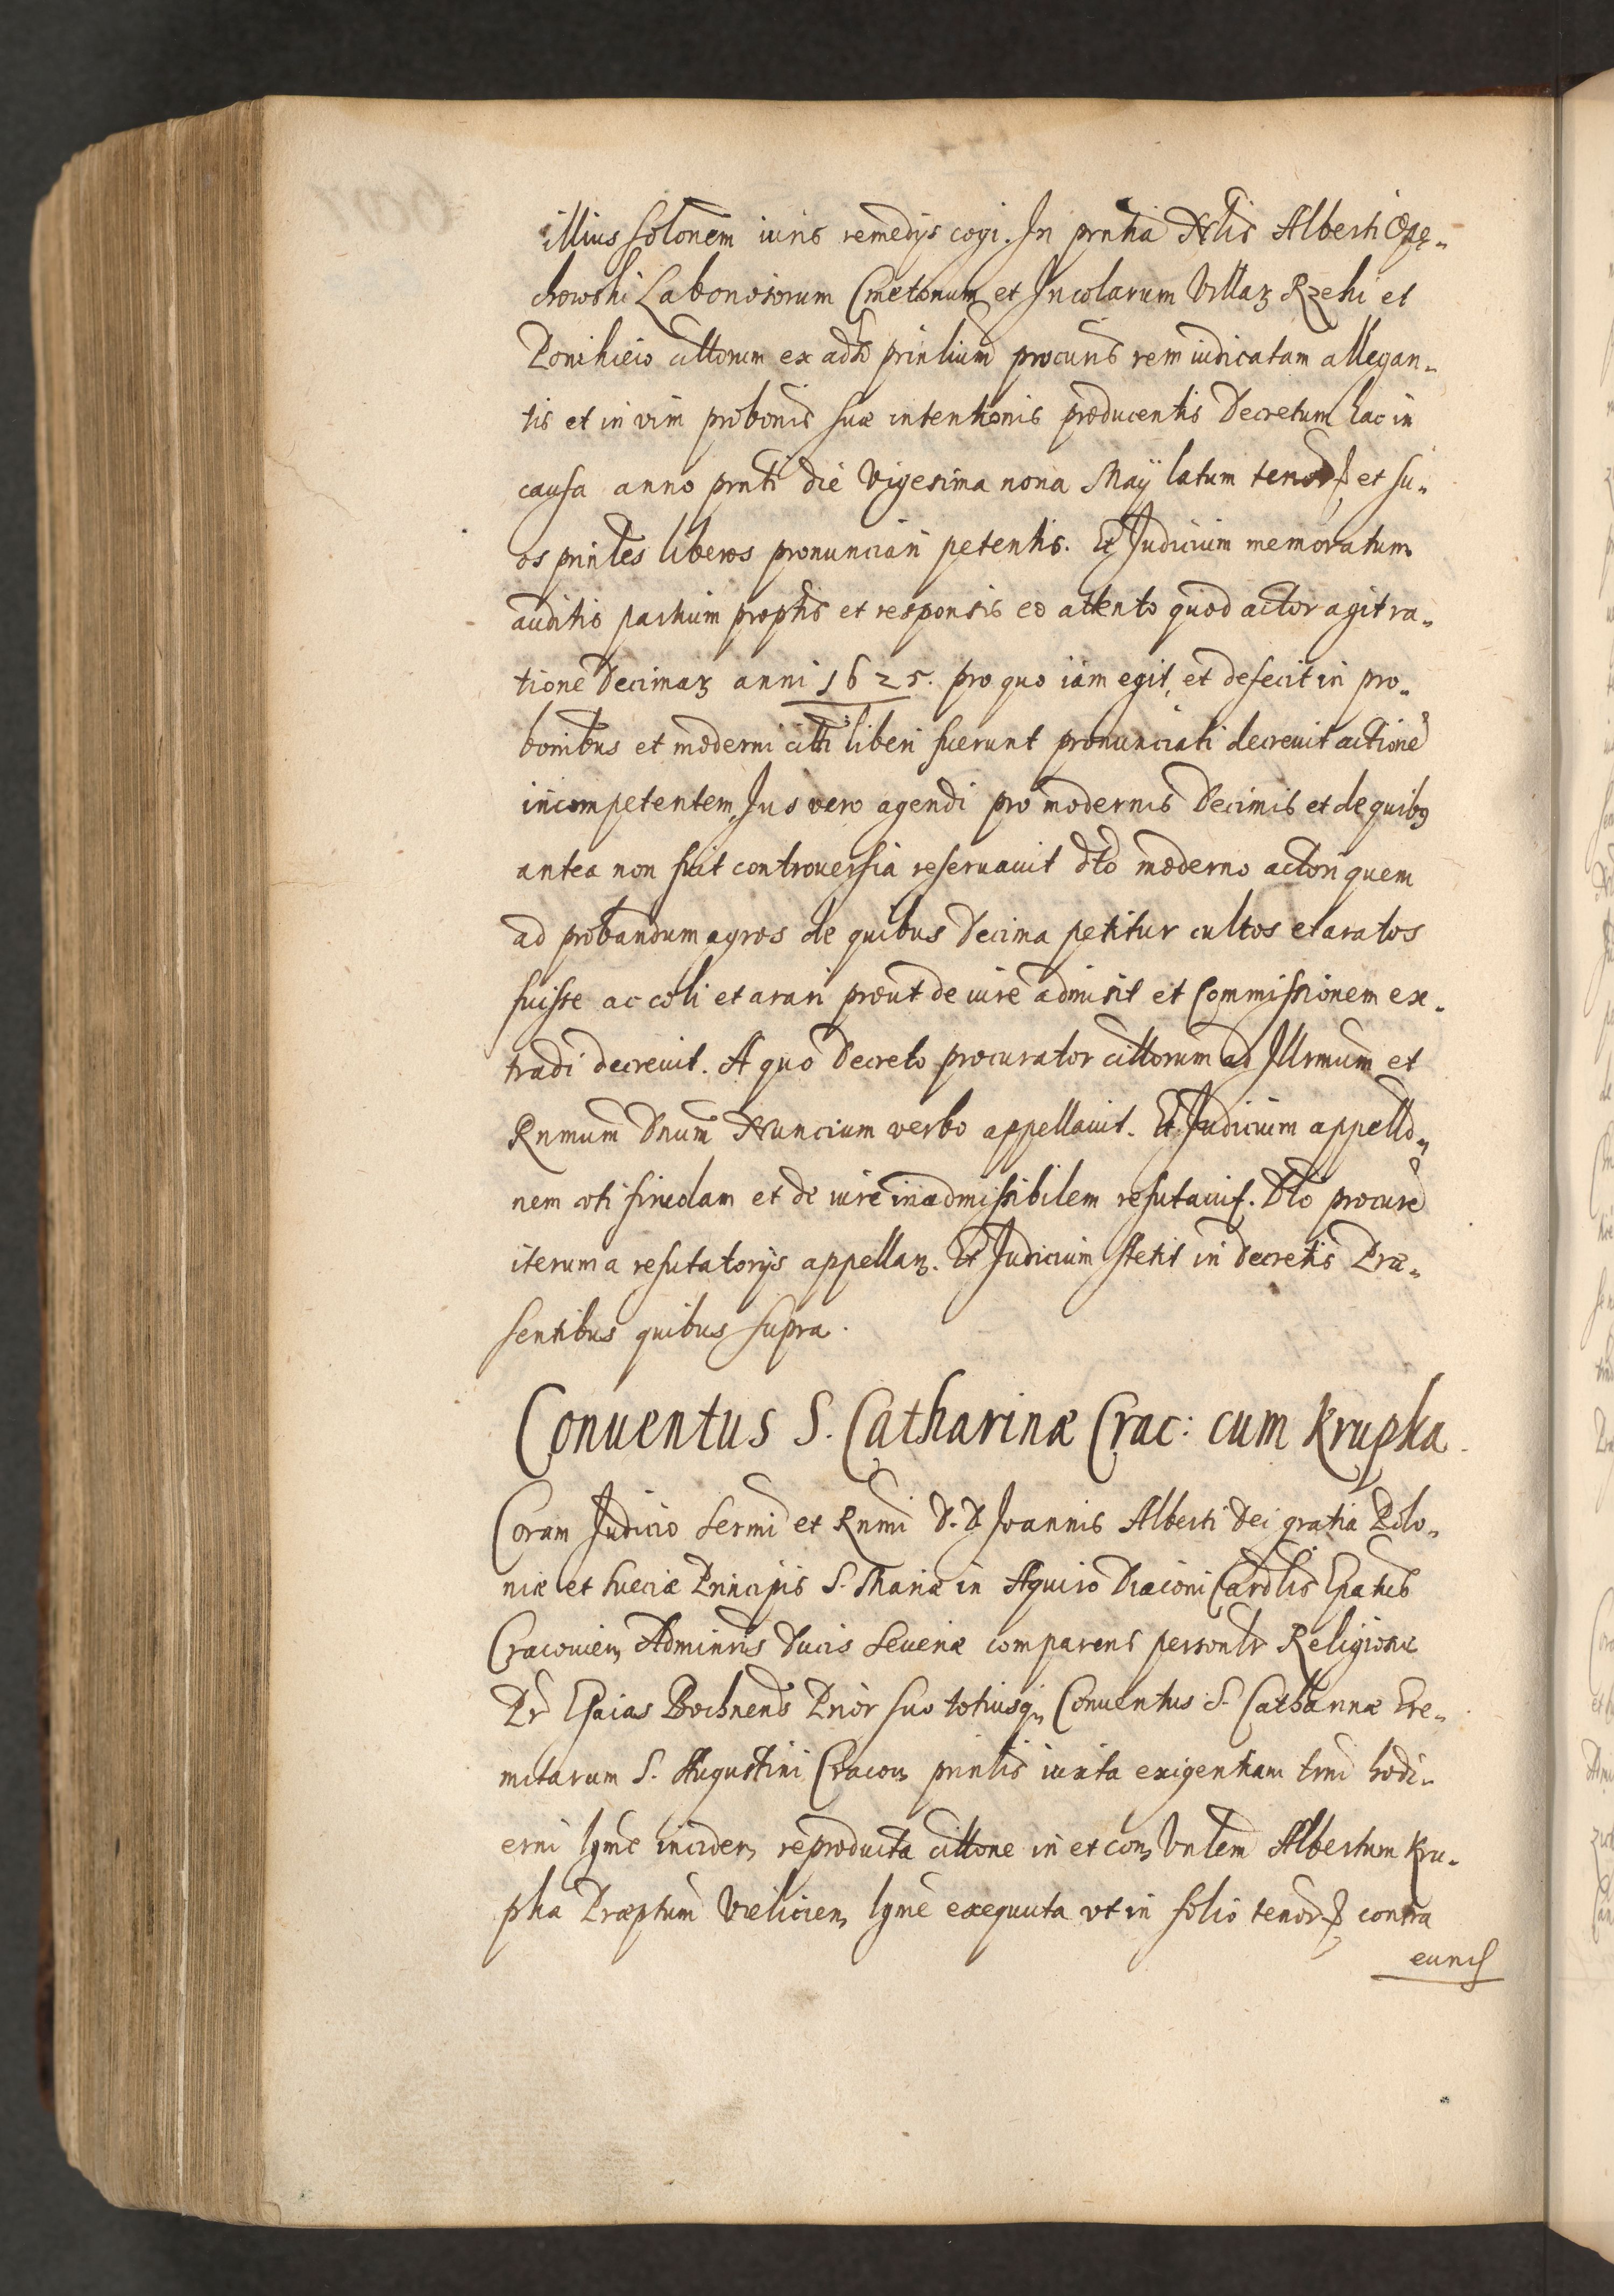 illius solonem iuris remedys cogi. In prntia Nlis Alberti Opę-
chowski Laboriosorum Cmetonum et Incolarum Villaz Rzeki et
Ponikieio cittorum ex adso prinlium procuris rem iudicatam allegan-
tis et in vim probonis suæ intentionis producentis Decretum hac in
causa anno prnti die Vigesima nona Maÿ latum tenor et su-
os prinles liberos pronunciari petentis. Et Judicium memoratum
auditis partium proptis et responsis eo attento quod actor agit ra-
tione Decimaz anni 1625. pro quo iam egit, et defecit in pro-
bonibus et moderni citti liberi fuerunt pronunciati decreuit actione
incompetentem, Jus vero agendi pro modernis Decimis et de quibꝯ
antea non fuit controuersia reseruauit dto moderno actori quem
ad probandum agros de quibus Decima petitur cultos et aratos
fuisse ac coli et arari prout de iure admisit et Commissionem ex-
tradi decreuit. A quo Decreto procurator cittorum ad Illrmum et
Rnmum Dnum Nuncium verbo appellauit. Et Judicium appello-
nem vti friuolam et de iure inadmissibilem refutauit. Dto procure
iterum a refutatorijs appellaz. Et Judicium stetit in decretis Præ-
sentibus quibus supra.
Conuentus S. Catharinæ Crac: cum Krupka.
Coram Judicio Sermi et Rnmi D. D Joannis Alberti Dei gratia Polo-
niæ et Sueciæ Principis S. Mariæ in Aquiro Diaconi Cardlis Epatus
Cracouien Adminris Ducis Seueriæ comparens personlr Religiosus
Pr Esaias Bochnens Prior suo totiusq Conuentus S. Catharinæ Ere-
mitarum S. Augustini Cracou prinlis iuxta exigentiam trni hodi-
erni lgme inciden reproducta cittone in et con Vnlem Albertum Kru-
pka Præptum Vielicien lgme exequuta vt in folio tenor contra
eund